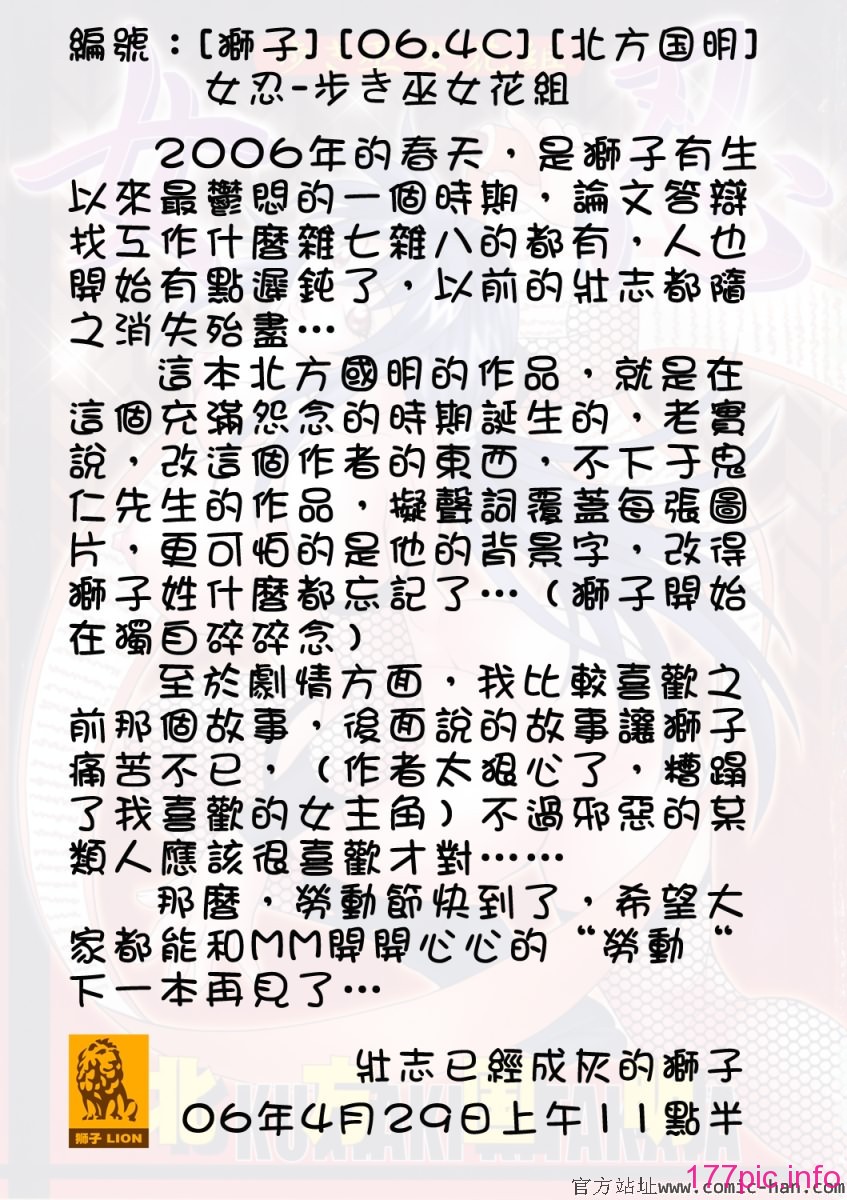 編號：[獅子] [06.4C] [北方国明]
女忍-步き巫女花組
2006年的春天，是獅子有生
以來最鬱悶的一個時期，論文答辯
找工作什麼雜七雜八的都有，人也
開始有點遲鈍了，以前的壯志都隨
之消失殆盡…
這本北方國明的作品，就是在
這個充滿怨念的時期誕生的，老實
說，改這個作者的東西，不下于鬼
仁先生的作品，擬聲詞覆蓋每張圖
片，更可怕的是他的背景字，改得
獅子姓什麼都忘記了…（獅子開始
在獨自碎碎念）
至於劇情方面，我比較喜歡之
前那個故事，後面說的故事讓獅子
痛苦不已，（作者太狠心了，糟蹋
了我喜歡的女主角）不過邪惡的某
類人應該很喜歡才對……
那麼，勞動節快到了，希望大
家都能和MM開開心心的“勞動“
下一本再見了…
壯志已經成灰的獅子
06年4月29日上午11點半
獅子 LION
北方国明
177pic.info
官方站址www.comic-han.com